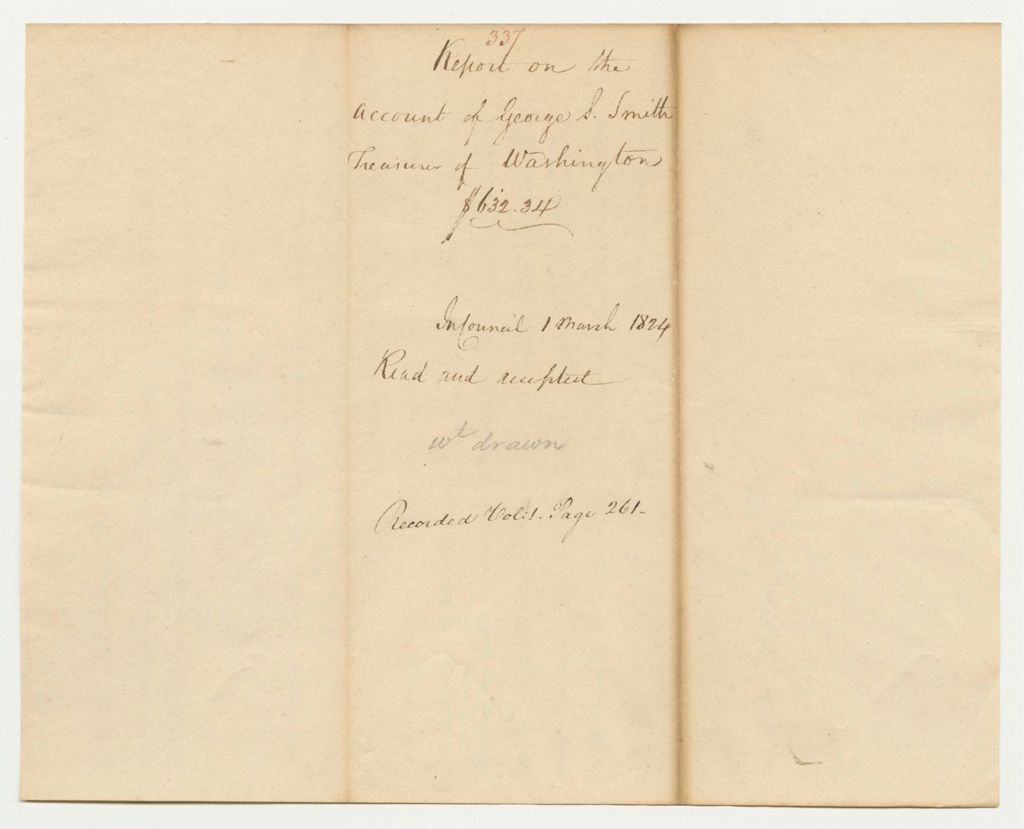 337
Report on the
account of George S. Smith
Treasurer of Washington
$632.34
In Council 1 March 1824
Read and accepted
wt drawn
Recorded Vol: 1. Page 261-